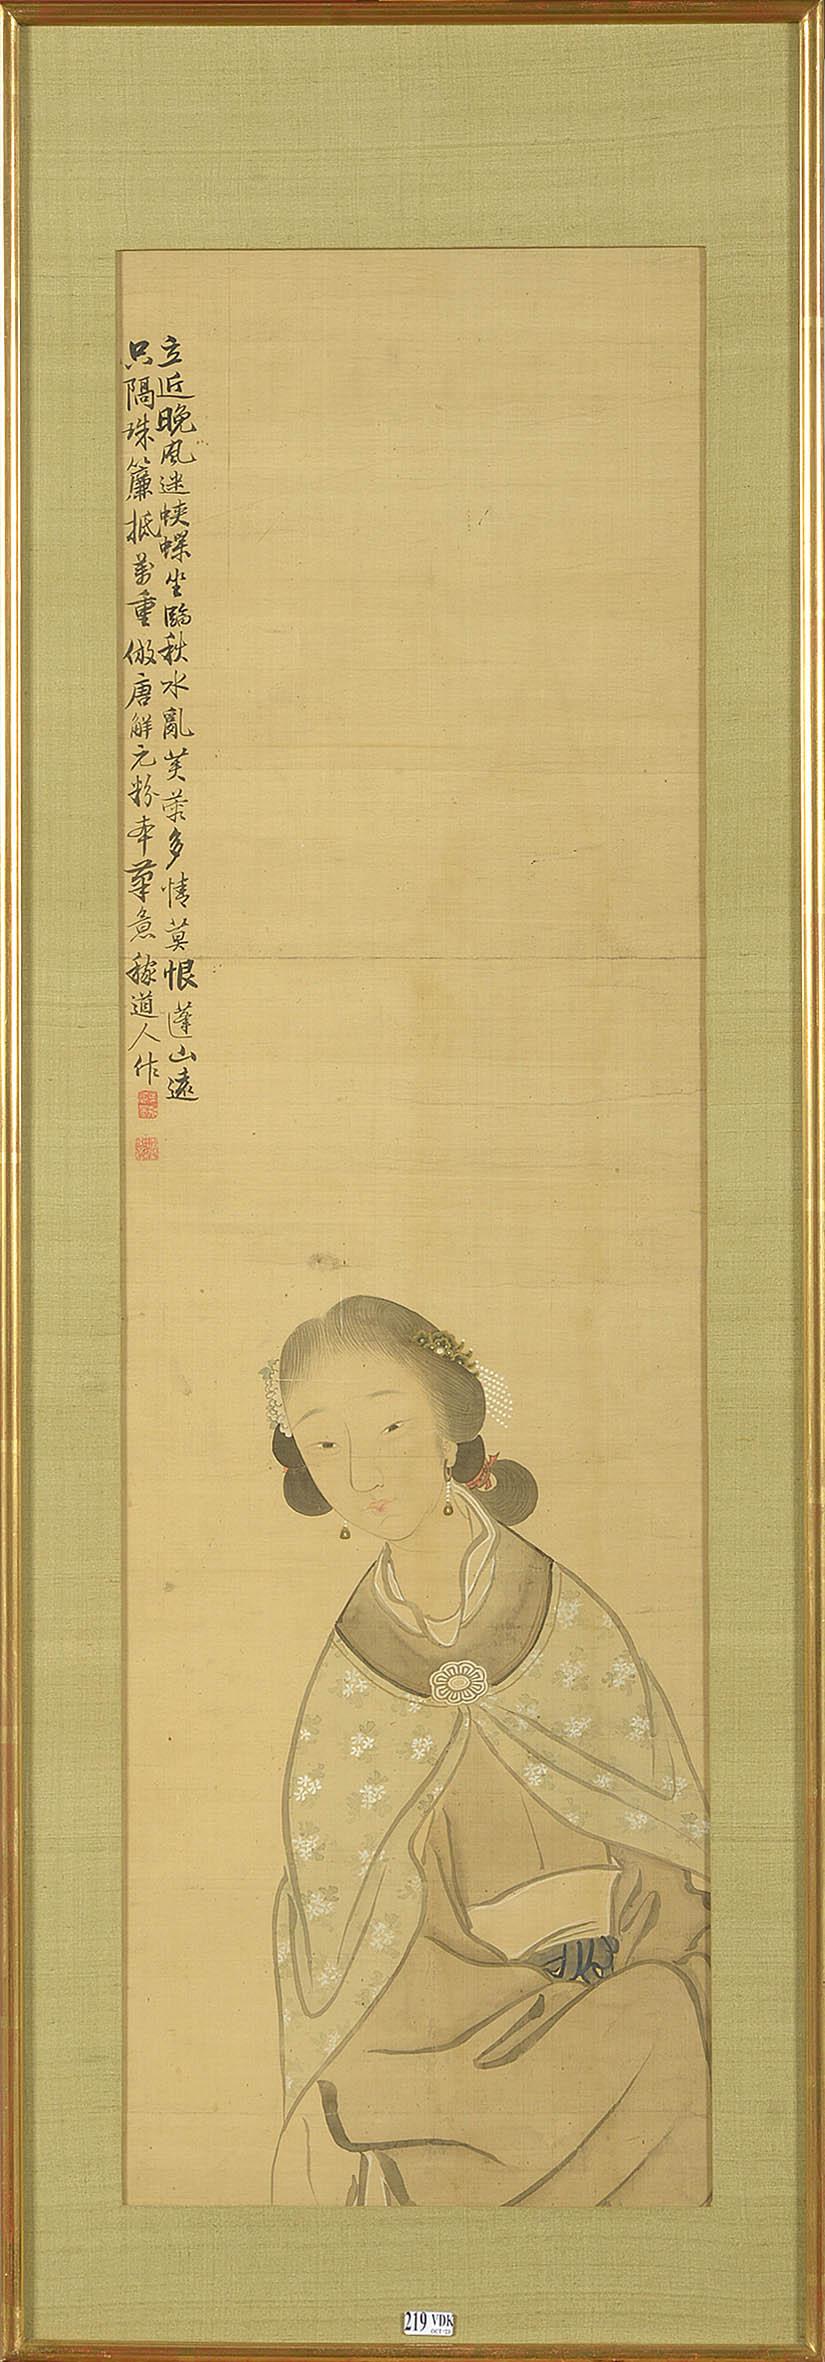 立近晚風迷蛺蝶坐臨秋水亂芙蓉多情莫恨蓬山遠
只隔珠簾抵萬重倣唐解元粉本筆意稼道人作
219 VDK
OCT-23